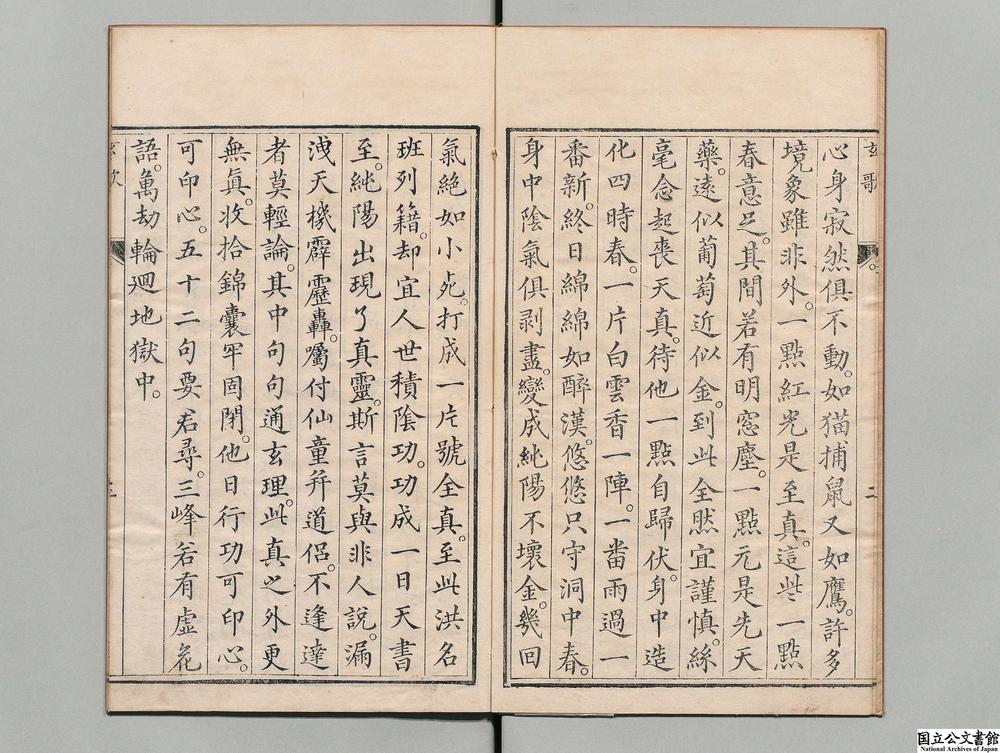 玄歌 二
心身寂然俱不動。如猫捕鼠又如鷹。許多
境象雖非外。一點紅光是至真。這些一點
春意足。其間若有明窓塵。一點元是先天
藥。遠似葡萄近似金。到此全然宜謹慎。絲
毫念起喪天真。待他一點自歸伏。身中造
化四時春。一片白雲香一陣。一畨雨過一
番新。終日綿綿如醉漢。悠悠只守洞中春。
身中陰氣俱剥盡。變成純陽不壞金。幾回
氣絕如小死。打成一片號全真。至此洪名
班列籍。却宜人世積陰功。功成一日天書
至。純陽出現了真靈。斯言莫與非人說。漏
洩天機霹靂轟。囑付仙童幷道侣。不逢達
者莫輕論。其中句句通玄理。此真之外更
無真。收拾錦囊牢固閉。他日行功可印心。
可印心。五十二句要君尋。三峰若有虛花
語。萬劫輪廻地獄中。
国立公文書館
National Archives of Japan